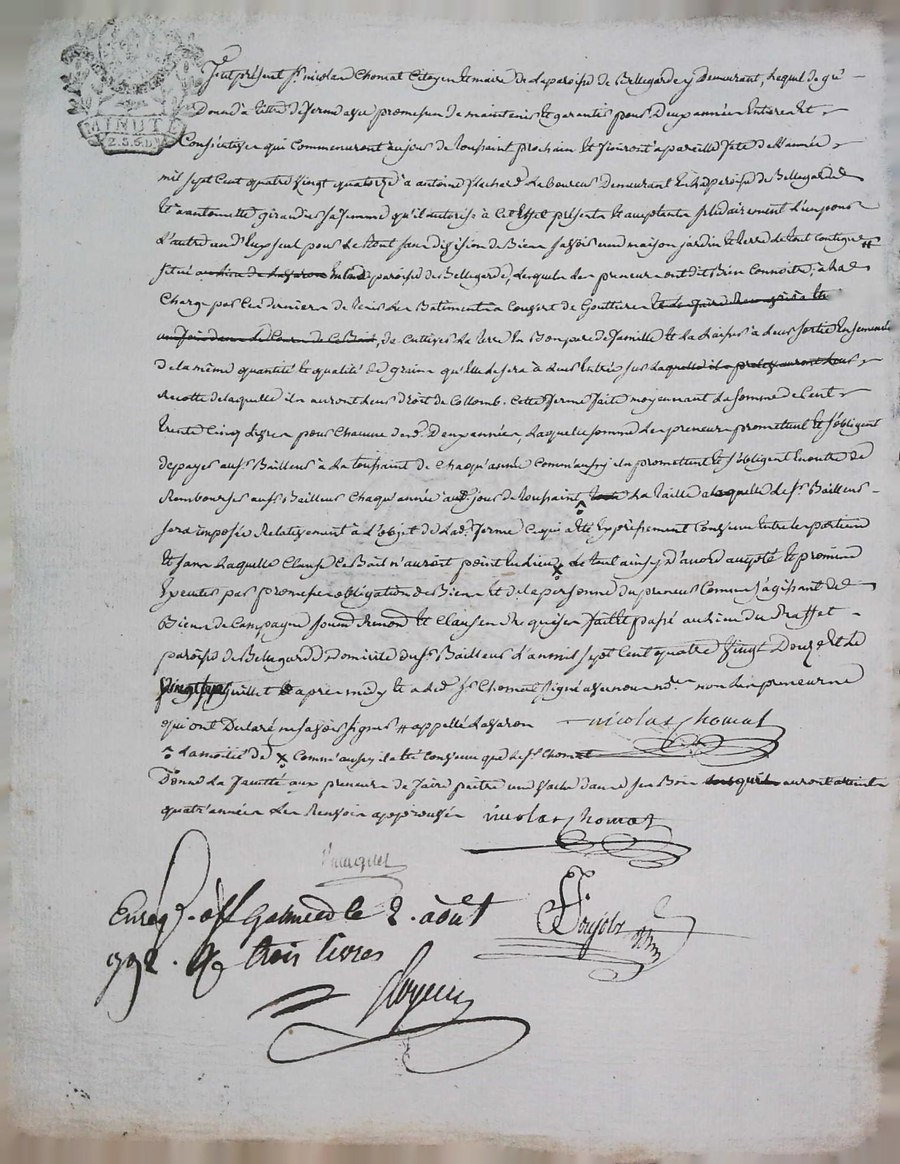 MINUTE
2.S.6.D.
fut présent Sr. nicolas Chomat Citoyen et maire de la paroisse de Bellegarde y Demeurant, Lequel de gré
Donne à titre de ferme avec promesse de maintenir et garantir pour Deux années Entieres et
Consécutives qui Commenceront au jour de toussaint prochain et finiront à pareille fete de L'année
mil sept Cent quatre vingt quatorze à antoine Laboureur demeurant En La paroisse de Bellegarde
et à antoinette girandier sa femme qu'il autorise à Cet Effet présents et acceptants solidairement L'un pour
L'autre un D'Eux seul pour Le tout sans Division de Biens savoir une maison jardin et terre de tout Contigue #
situé au lieu de Lazaron En Lad. paroisse de Bellegarde, Lesquels Les preneurs ont dit Bien Connoitre, à La
Charge par Ces derniers de tenir Les Batiments à Couvert de Gouttiere et de faire
de Cultiver La terre En Bon pere de famille et La Laisser à Leur sortie Ensemencée
de la même quantité et qualité de grains qu'Elle sera à Leur Entrée sur Laquelle
recolte de laquelle ils auront Leur Droit de Collomb. Cette ferme faite moyennant La somme de Cent
trente Cinq Livres pour Chacune desd. Deux années, Laquelle somme Les preneurs promettent et s'obligent
de payer aud. Sr. Bailleur à La toussaint de Chaqu'année Comm'aussy ils promettent et s'obligent En outre de
Rembourser aud. Sr. Bailleur Chaqu'année aud. jour de toussaint La taille a laquelle Led. Sr. Bailleur
sera imposée Relativement à L'objet de Lad. ferme Ce qui a été Expressement Convenu Entre Les parties
Et sans Laquelle Clause Ce Bail n'auroit point Eu Lieu x Le tout ainsy D'accord accepté et promis
Executer par promesse obligation de Biens Et de la personne du preneur Comme s'agissant de
Biens de Campagne soumis. Renond. et Clauses Requises fait et passé au Lieu du
paroisse de Bellegarde Domicile dud. Sr. Bailleur L'an mil sept Cent quatre vingt Douze Et Le
vingt sept juillet après midy et a Led. Sr. Chomat signé avec nous nd. re non Les preneurs
qui ont Declaré ne savoir signer # appellé Lazaron nicolas Chomat
La moitié de x Comm'aussy il a été Convenu que Led. Sr. Chomat
Donne La faculté aux preneurs de faire paitre une vache dans ses Bois auront atteint
quatr'années Les Renvois approuvés nicolas Chomat
Enregt. à St. Galmier le 2. août
1792. Rc trois livres